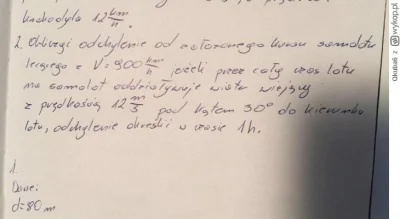 kładodyla 12 km/h.
2. Obliczyć odchylenie od założonego kursu samolotu
lecącego z V=900 km/h jeżeli przez cały czas lotu
na samolot oddziaływuje wiatr wiejący
z prędkością 12 m/s pod kątem 30° do kierunku
lotu, odchylenie określić w czasie 1h.
1.
Dane:
d=80m
wykop.pl
z gramna